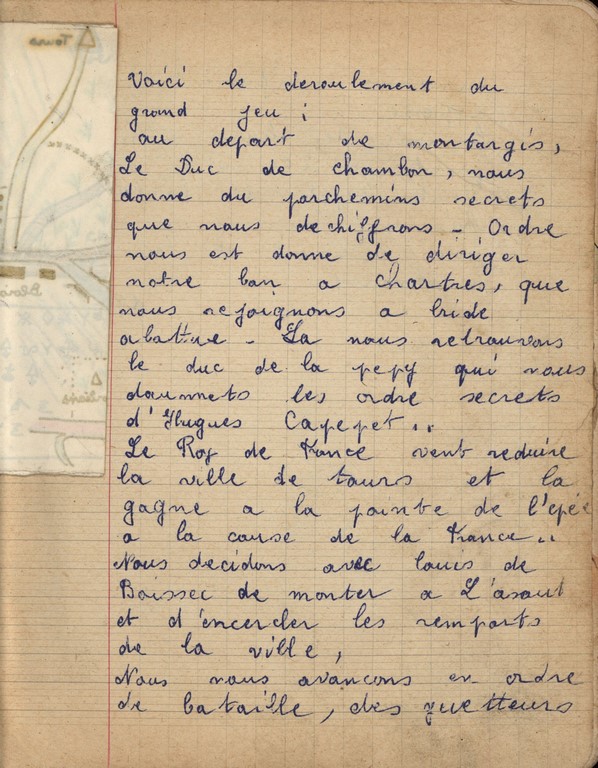 Tours
Blois
Orléans
Voici le deroulement du
grand jeu :
au depart de montargis,
Le Duc de chambon, nous
donne du parchemins secrets
que nous dechiffrons - Ordre
nous est donne de diriger
notre ban a chartres, que
nous rejoignons a bride
abattue - La nous retrouvons
le duc de la pepy qui nous
daumets les ordre secrets
d'Hugues Capepet ..
Le Roy de France veut reduire
la ville de tours et la
gagne a la pointe de l'epée
a la cause de la France ..
Nous decidons avec louis de
Boissec de monter a L'asaut
et d'encercler les remparts
de la ville,
Nous nous avancons en ordre
de bataille, des guetteurs